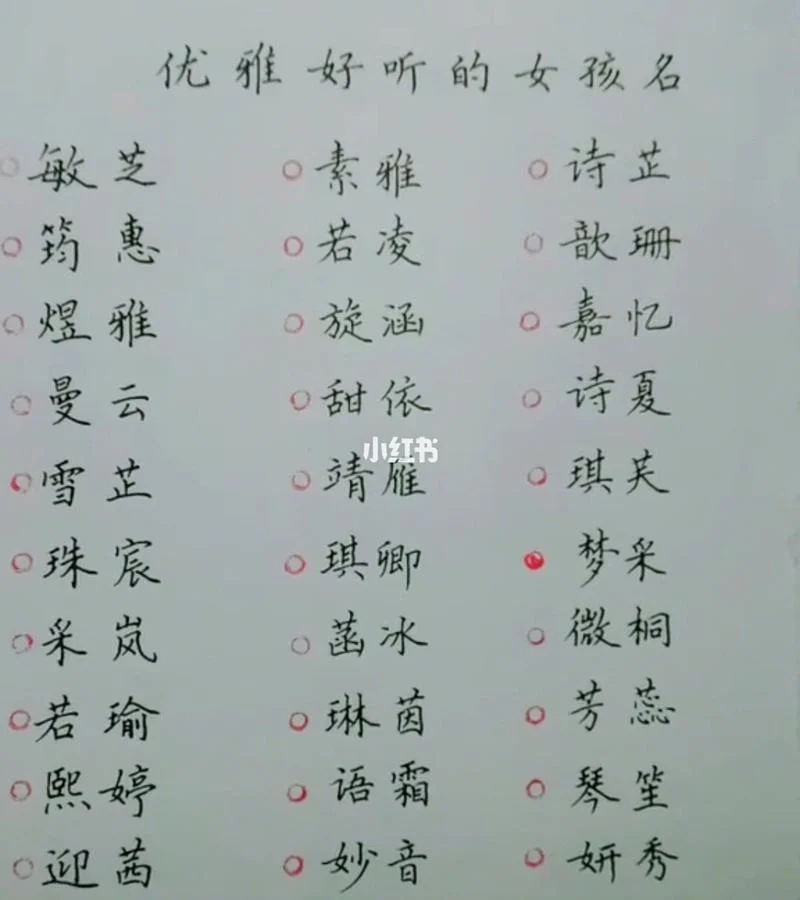 优雅好听的女孩名
敏芝 素雅 诗芷
筠惠 若凌 歆珊
煜雅 旋涵 嘉忆
曼云 甜依 诗夏
小红书
雪芷 靖雁 琪芙
珠宸 琪卿 梦采
采岚 菡冰 微桐
若瑜 琳茵 芳蕊
熙婷 语霜 琴笙
迎茜 妙音 妍秀